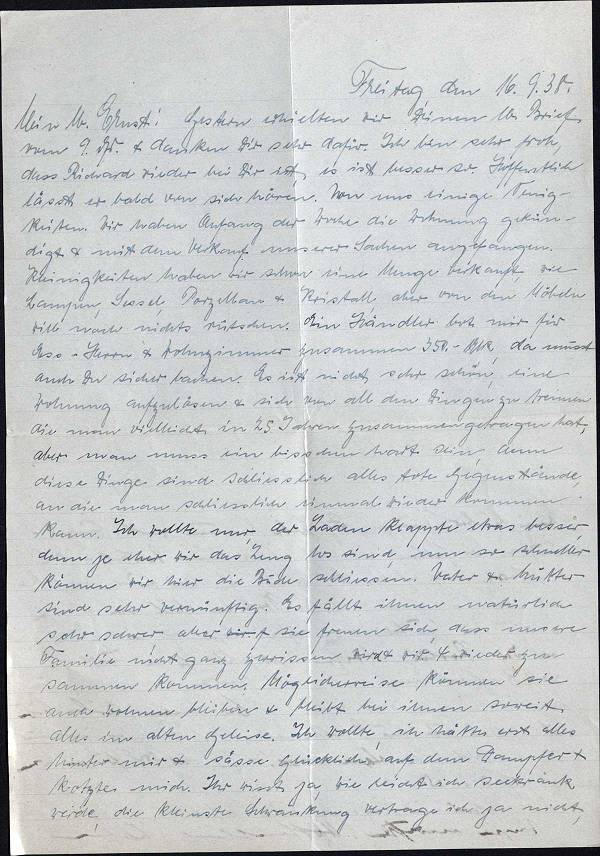 Freitag den 16.9.38.
Mein lb. Ernst! Gestern erhielten wir Deinen lb. Brief
vom 9. ds. & danken Dir sehr dafür. Ich bin sehr froh,
dass Richard wieder bei Dir ist, es ist besser so. Hoffentlich
lässt er bald von sich hören. Von uns einige Neuig-
keiten. Wir haben Anfang der Woche die Wohnung gekün-
digt & mit dem Verkauf unserer Sachen angefangen.
Kleinigkeiten haben wir schon eine Menge verkauft, wie
Lampen, Sessel, Porzellan & Kristall aber von den Möbeln
will noch nichts rutschen. Ein Händler bot mir für
Ess- Herrn & Wohnzimmer zusammen 350.- RMk, da musst
auch Du sicher lachen. Es ist nicht sehr schön, eine
Wohnung aufzulösen & sich von all den Dingen zu trennen
die man vielleicht in 25 Jahren zusammengetragen hat,
aber man muss ein bisschen hart sein denn
diese Dinge sind schliesslich alles tote Gegenstände,
an die man schliesslich einmal wieder kommen
kann. Ich wollte nur, der Laden klappte etwas besser,
denn je eher wir das Zeug los sind, um so schneller
können wir hier die Bude schliessen. Vater & Mutter
sind sehr vernünftig. Es fällt ihnen natürlich
sehr schwer aber sie freuen sich, dass unsere
Familie nicht ganz zerrissen wird & wir wieder zu-
sammen kommen. Möglicherweise können sie
auch wohnen bleiben & bleibt bei ihnen soweit
alles im alten Geleise. Ich wollte, ich hätte erst alles
hinter mir & sässe glücklich auf dem Dampfer &
kotzte mich. Ihr wisst ja, wie leicht ich seekrank
werde, die kleinste Schwankung vertrage ich ja nicht,